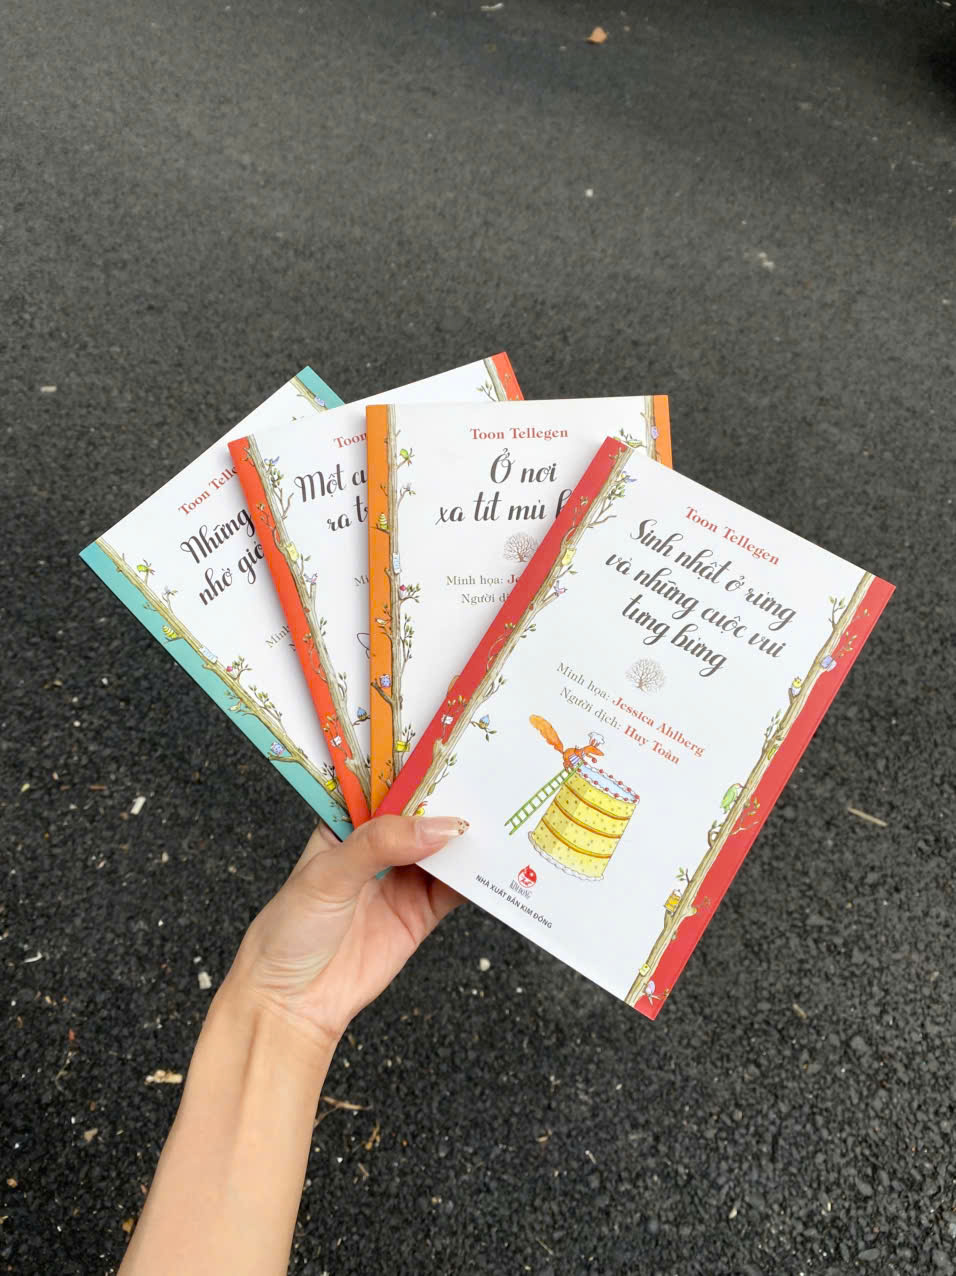 Toon
Những
nhờ gió
Toon
Một
ra
Toon Tellegen
Ở nơi
xa tít mù
Minh họa:
Người
Toon Tellegen
Sinh nhật ở rừng
và những cuộc vui
tưng bừng
Minh họa: Jessica Ahlberg
Người dịch: Huy Toàn
KIM ĐỒNG
NHÀ XUẤT BẢN KIM ĐỒNG